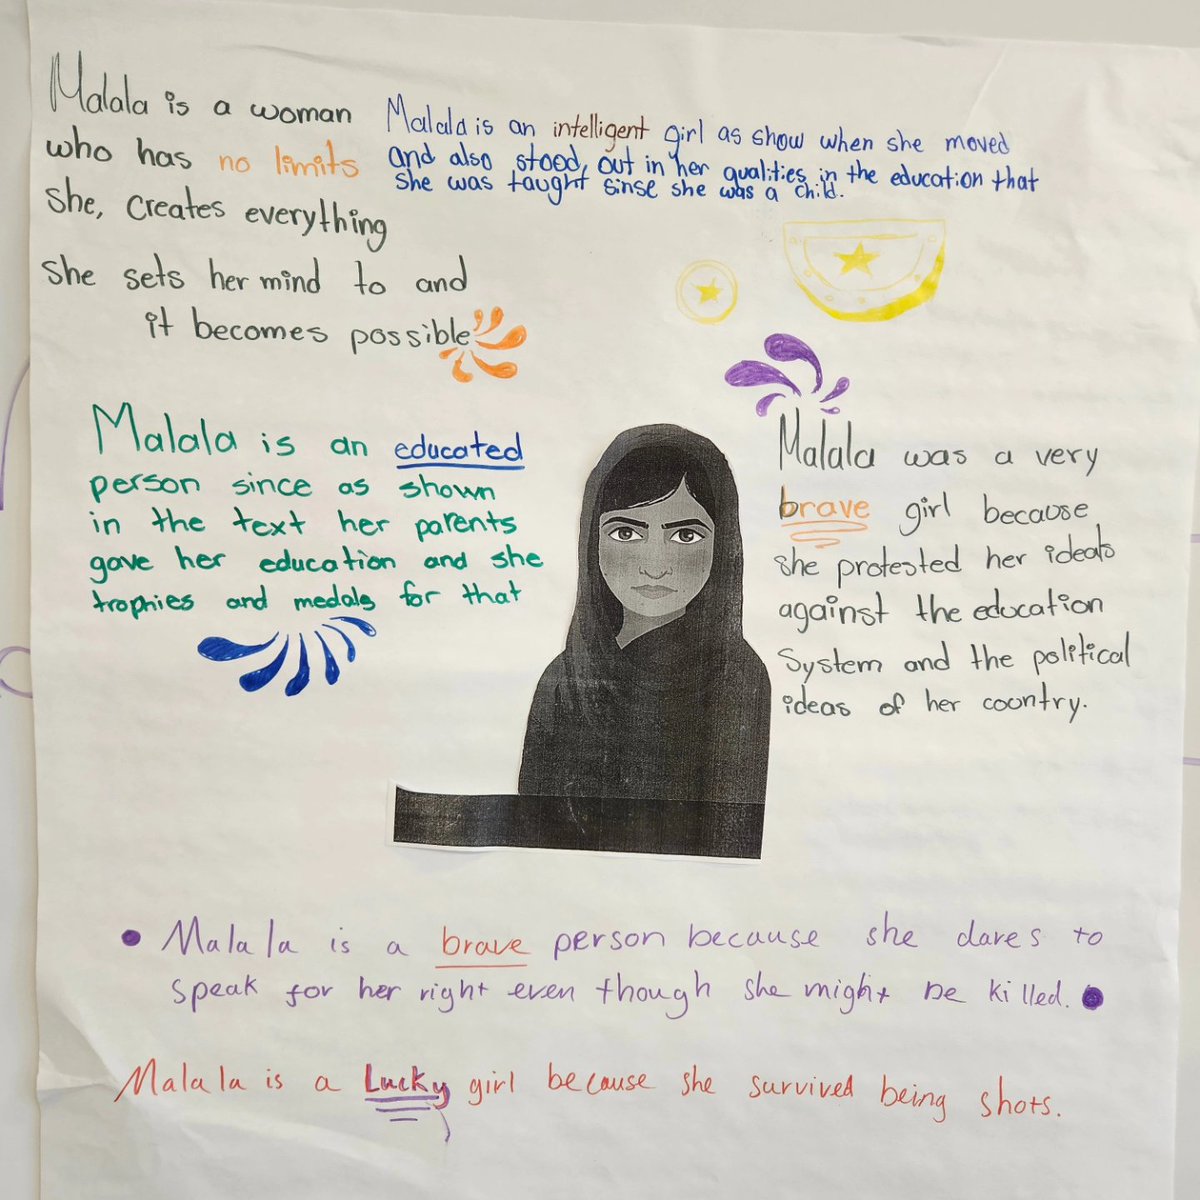 Malala is a woman
who has no limits
She, creates everything
she sets her mind to and
it becomes possible
Malala is an intelligent girl as show when she moved
and also stood, out in her qualities in the education that
she was taught sinse she was a child.
Malala is an educated
person since as shown
in the text her parents
gave her education and she
trophies and medals for that
Malala was a very
brave girl because
she protested her ideals
against the education
System and the political
ideas of her country.
Malala is a brave person because she dares to
speak for her right even though she might be killed.
Malala is a Lucky girl because she survived being shots.